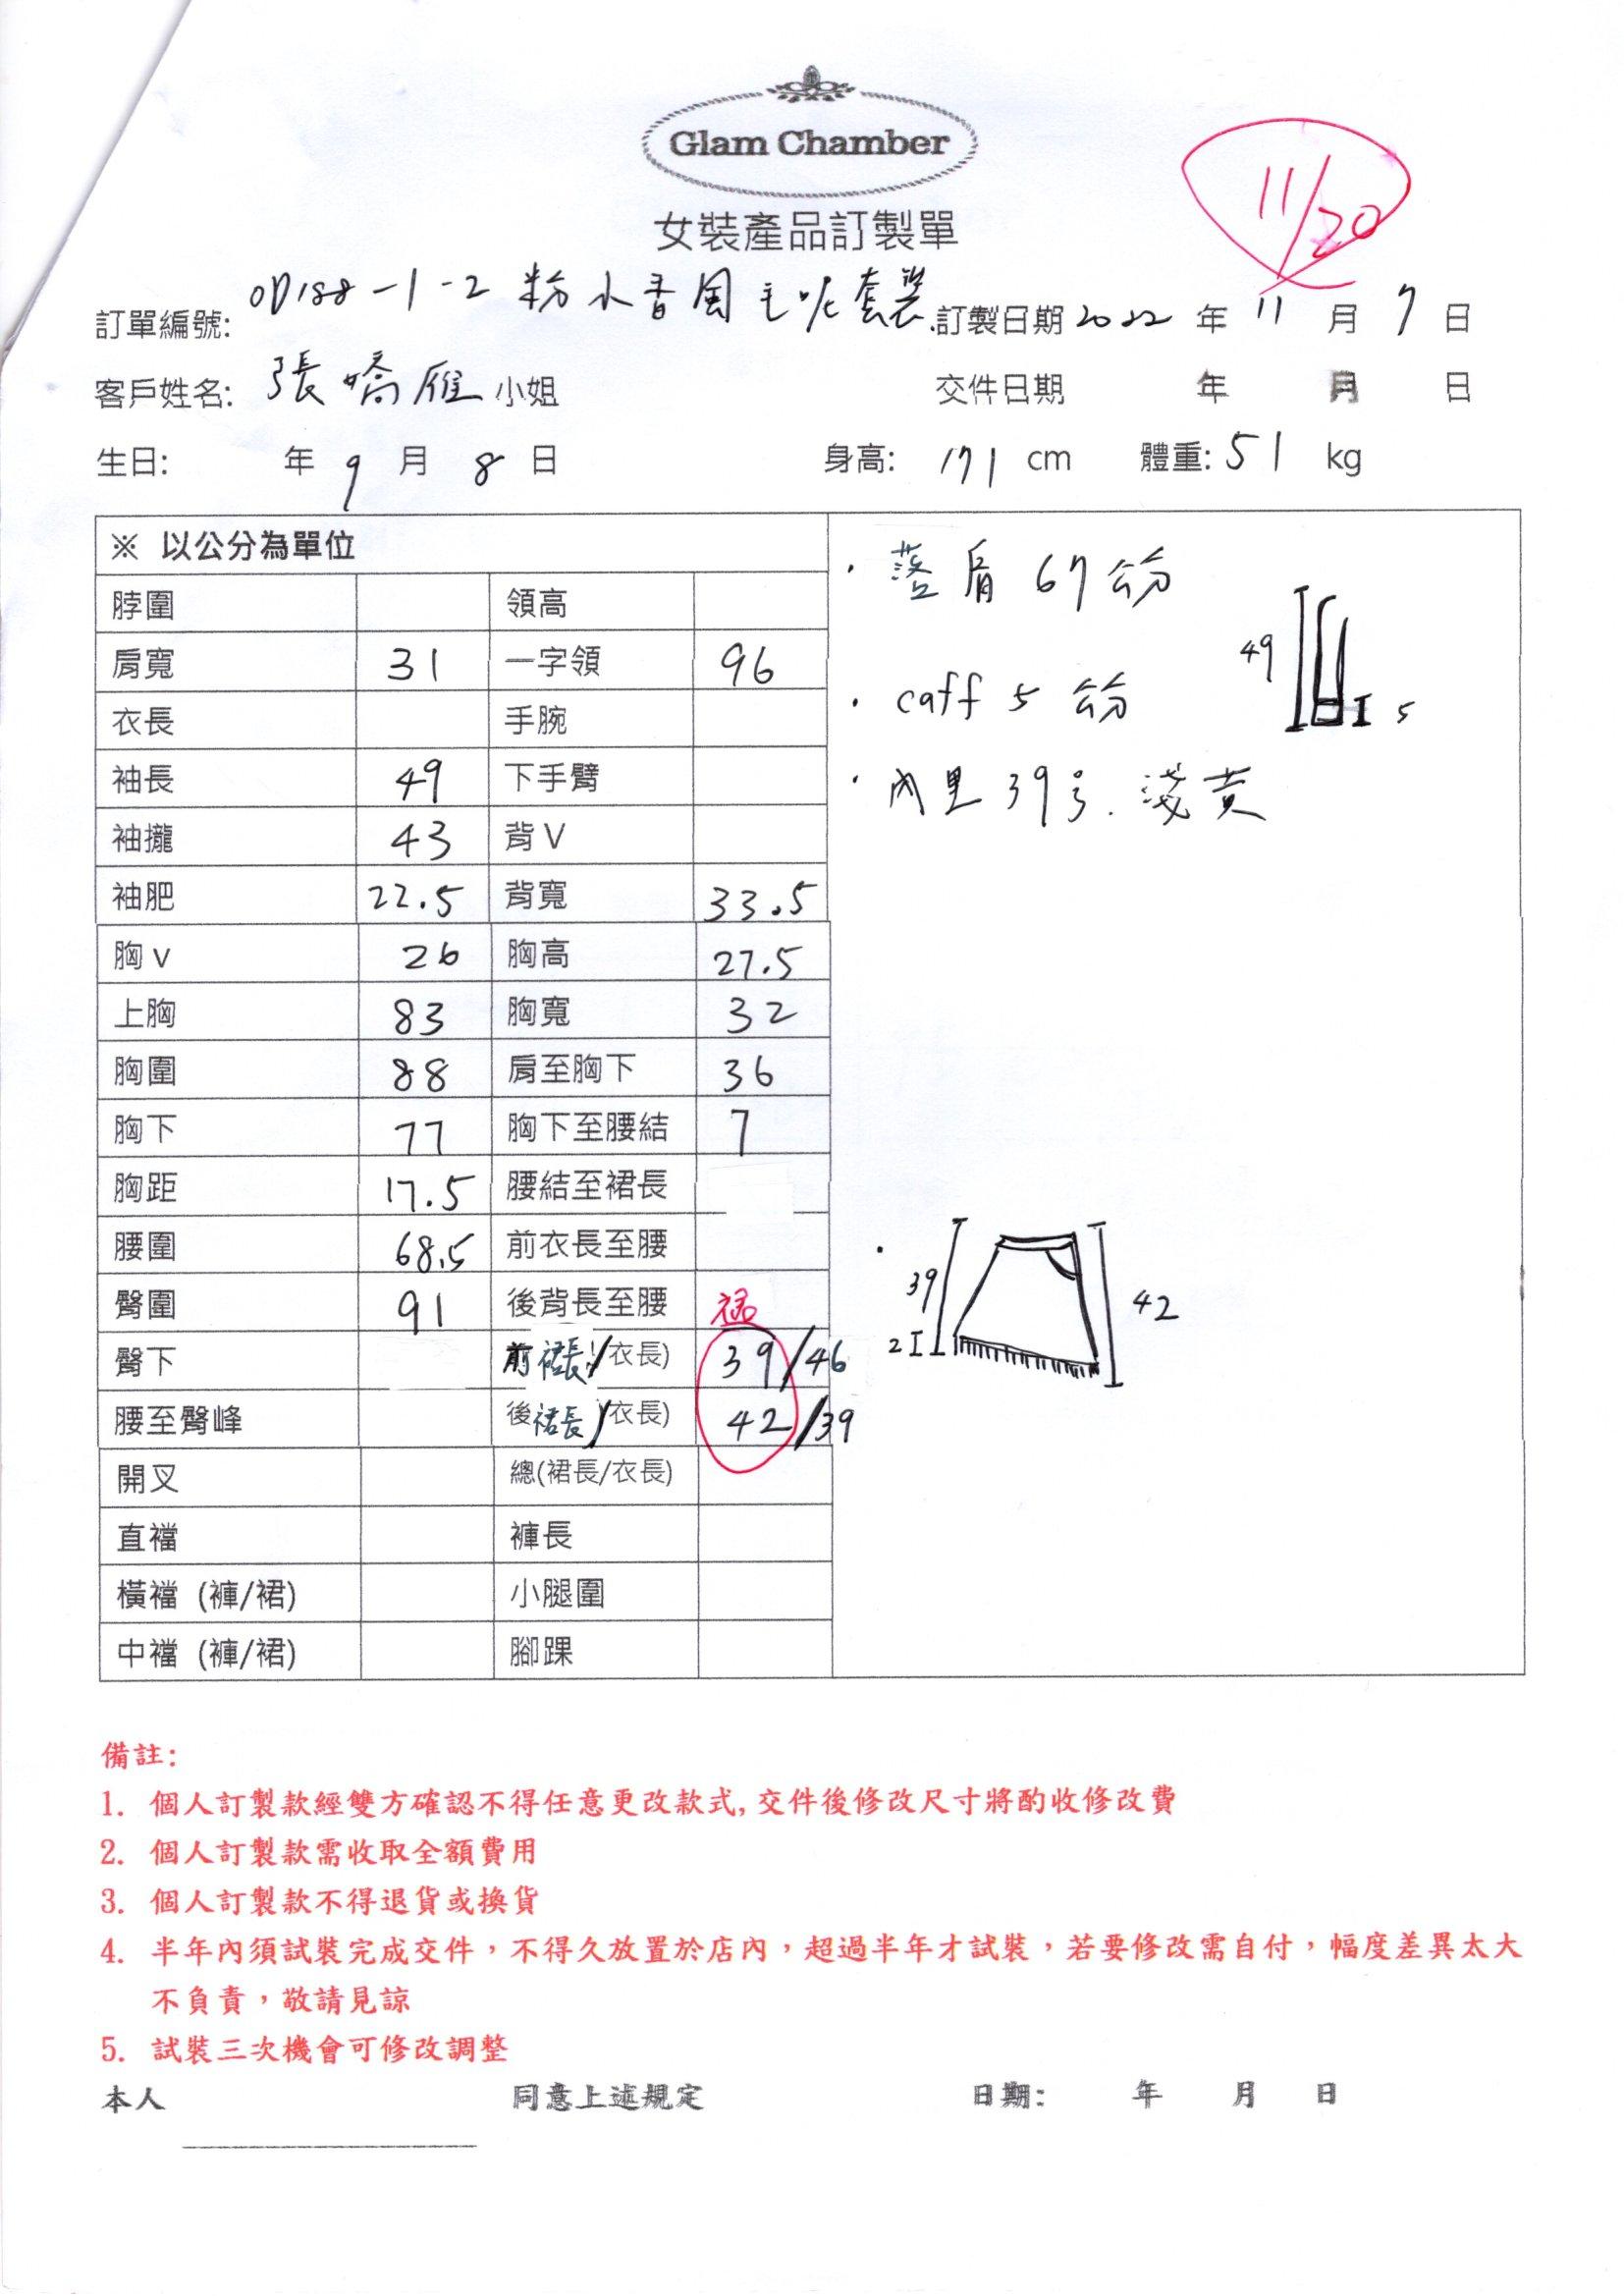 Glam Chamber
11/20
女裝產品訂製單
訂單編號: OD188-1-2 粉小香風毛呢套裝. 訂製日期 2022 年 11 月 7 日
客戶姓名: 張嬌雁 小姐 交件日期 年 月 日
生日: 年 9 月 8 日 身高: 171 cm 體重: 51 kg
※ 以公分為單位
脖圍 領高
肩寬 31 一字領 96
衣長 手腕
袖長 49 下手臂
袖攏 43 背V
袖肥 22.5 背寬 33.5
胸v 26 胸高 27.5
上胸 83 胸寬 32
胸圍 88 肩至胸下 36
胸下 77 胸下至腰結 7
胸距 17.5 腰結至裙長
腰圍 68.5 前衣長至腰
臀圍 91 後背長至腰
臀下 前裙長/衣長) 39/46
腰至臀峰 後裙長/衣長) 42/39
開叉 總(裙長/衣長)
直襠 褲長
橫襠 (褲/裙) 小腿圍
中襠 (褲/裙) 腳踝
· 落肩 67 公分
· caff 5 公分
· 內里 39号. 淺黃
49
5
39
2
42
備註:
1. 個人訂製款經雙方確認不得任意更改款式, 交件後修改尺寸將酌收修改費
2. 個人訂製款需收取全額費用
3. 個人訂製款不得退貨或換貨
4. 半年內須試裝完成交件，不得久放置於店內，超過半年才試裝，若要修改需自付，幅度差異太大
不負責，敬請見諒
5. 試裝三次機會可修改調整
本人 同意上述規定 日期: 年 月 日